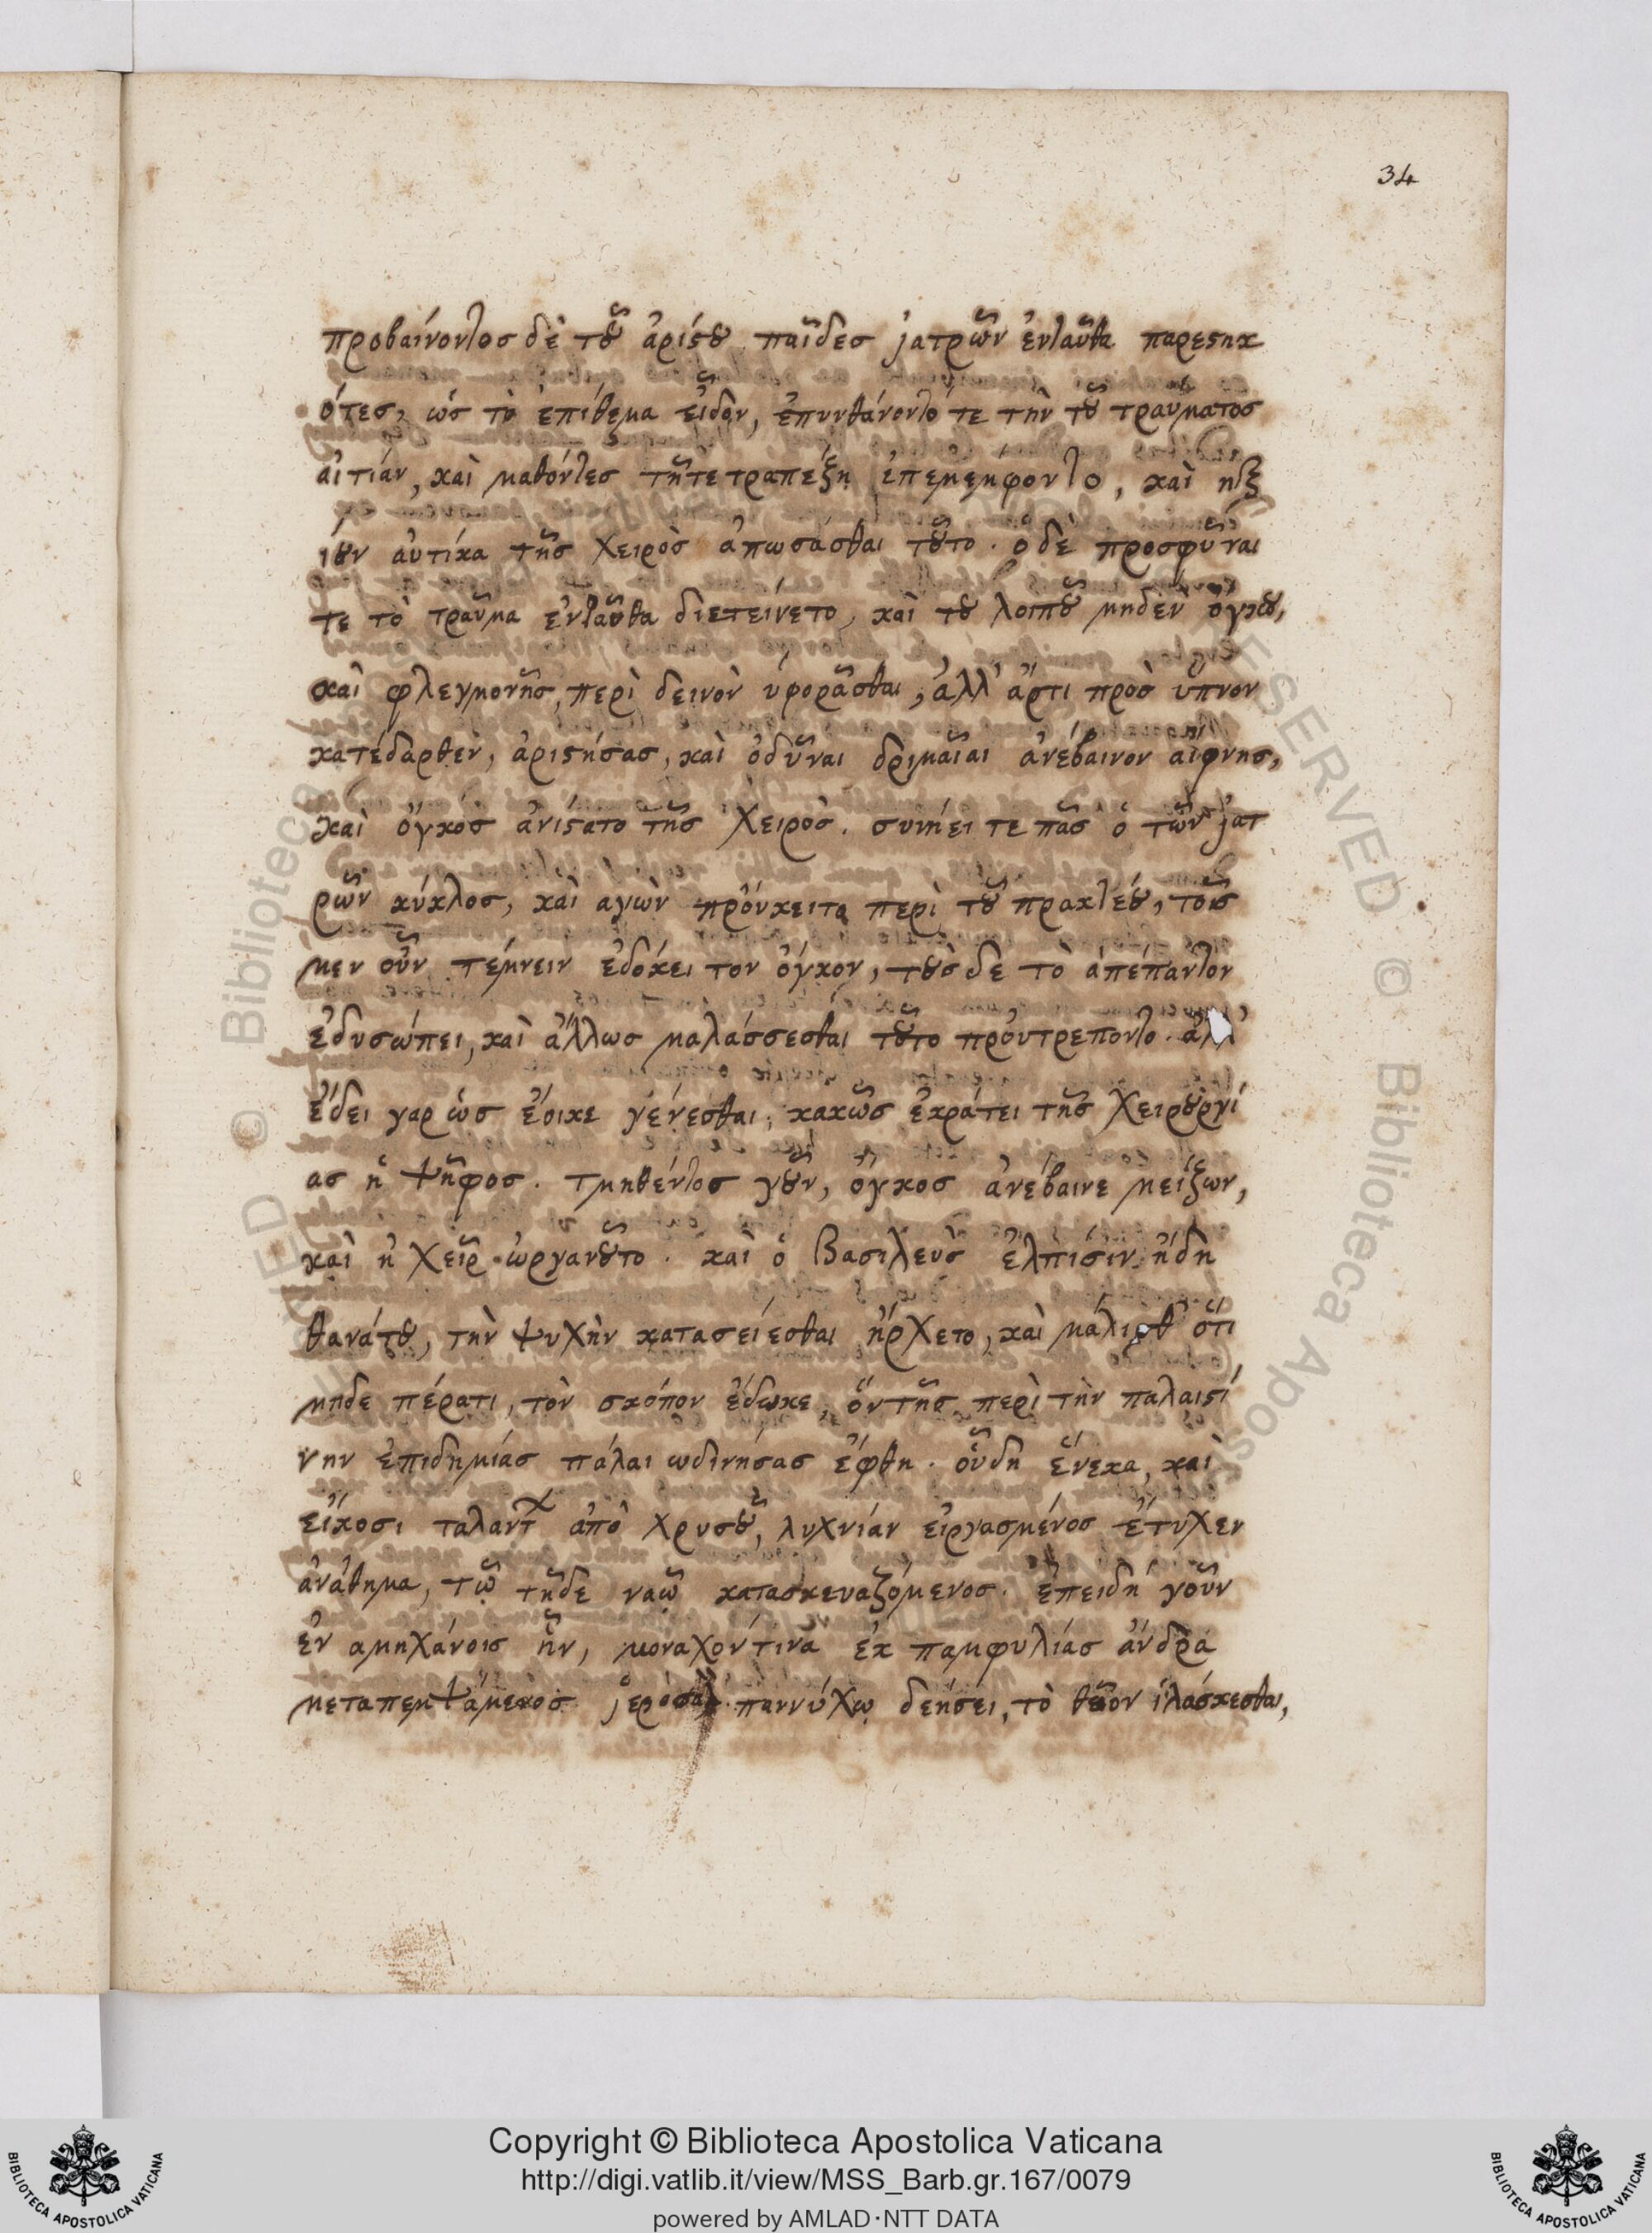 34
προβαίνοντος δὲ τοῦ ἀρίστου παῖδες ἰατρῶν ἐνταῦθα παρεστηκ
ότες, ὡς τὸ ἐπίθεμα εἶδον, ἐπυνθάνοντό τε τὴν τοῦ τραύματος
αἰτίαν, καὶ μαθόντες τῆτε τραπέζῃ ἐπεμέμφοντο, καὶ ηξ
ίουν αὐτίκα τῆς χειρὸς ἀπωσάσθαι τοῦτο. ὁ δὲ προσφῦναι
τε τὸ τραῦμα ἐνταῦθα διετείνετο, καὶ τοῦ λοιποῦ μηδὲν ὄγκου,
καὶ φλεγμονῆς, περὶ δεινὸν ὑφορᾶσθαι, ἀλλ' ἄρτι πρὸς ὕπνον
κατέδαρθεν, ἀριστήσας, καὶ ὀδῦναι δριμαῖαι ἀνέβαινον αἴφνης,
καὶ ὄγκος ἀνίστατο τῆς χειρὸς. συνήει τε πᾶς ὁ τῶν ἰατ
ρῶν κύκλος, καὶ αγὼν προύκειτο περὶ τοῦ πρακτέου, τοῖς
μεν οὖν τέμνειν ἐδόκει τον ὄγκον, τοὺς δε τὸ ἀπέπαντον
ἐδυσώπει, καὶ ἄλλως μαλάσσεσθαι τοῦτο προυτρεποντο. ἀλλ'
ἔδει γαρ ὡς ἔοικε γένεσθαι, κακῶς ἐκράτει τῆς χειρουργί
ας ἡ ψῆφος. τμηθέντος γοῦν, ὄγκος ἀνέβαινε μείζων,
καὶ ἡ χεῖρ ὠργανοῦτο. καὶ ὁ βασιλεὺς ἐλπίσιν ἤδη
θανάτου, τὴν ψυχὴν κατασείεσθαι ἤρχετο, καὶ μάλισθ' ὅτι
μηδε πέρατι, τὸν σκόπον ἔδωκε, ὅν τῆς περὶ τὴν παλαιστί
νην ἐπιδημίας πάλαι ωδινήσας ἔφθη. οὗδη ἕνεκα, καὶ
εἴκοσι ταλαντ ἀπὸ χρυσοῦ, λυχνίαν εἰργασμένος ἔτυχεν
ἀνάθημα, τῶ τῆδε ναῶ κατασκευαζόμενος. ἐπειδὴ γοῦν
ἐν αμηχάνοις ἦν, μοναχόν τινα ἐκ παμφυλίας ἀνδρα
μεταπεμψάμενος παννύχῳ δεήσει, τὸ θεῖον ἱλάσκεσθαι,
Copyright © Biblioteca Apostolica Vaticana
http://digi.vatlib.it/view/MSS_Barb.gr.167/0079
powered by AMLAD·NTT DATA
BIBLIOTECA APOSTOLICA VATICANA
BIBLIOTECA APOSTOLICA VATICANA